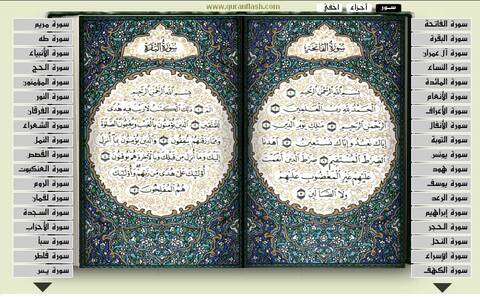 www.quranflash.com
سور
أجزاء
اخفي
سورة الفاتحة
سورة البقرة
سورة آل عمران
سورة النساء
سورة المائدة
سورة الأنعام
سورة الأعراف
سورة الأنفال
سورة التوبة
سورة يونس
سورة هود
سورة يوسف
سورة الرعد
سورة إبراهيم
سورة الحجر
سورة النحل
سورة الإسراء
سورة الكهف
سورة الفاتحة
بسم الله الرحمن الرحيم
الحمد لله رب العلمين
الرحمن الرحيم ملك يوم الدين
إياك نعبد وإياك نستعين اهدنا
الصرط المستقيم صرط الذين أنعمت
عليهم غير المغضوب عليهم
ولا الضالين
سورة البقرة
بسم الله الرحمن الرحيم
الم ذلك الكتب لا ريب فيه هدى
للمتقين الذين يؤمنون بالغيب ويقيمون الصلوة
ومما رزقنهم ينفقون والذين يؤمنون بما أنزل
إليك وما أنزل من قبلك وبالآخرة هم يوقنون
أولئك على هدى من ربهم وأولئك
هم المفلحون
سورة مريم
سورة طه
سورة الأنبياء
سورة الحج
سورة المؤمنون
سورة النور
سورة الفرقان
سورة الشعراء
سورة النمل
سورة القصص
سورة العنكبوت
سورة الروم
سورة لقمان
سورة السجدة
سورة الأحزاب
سورة سبأ
سورة فاطر
سورة يس